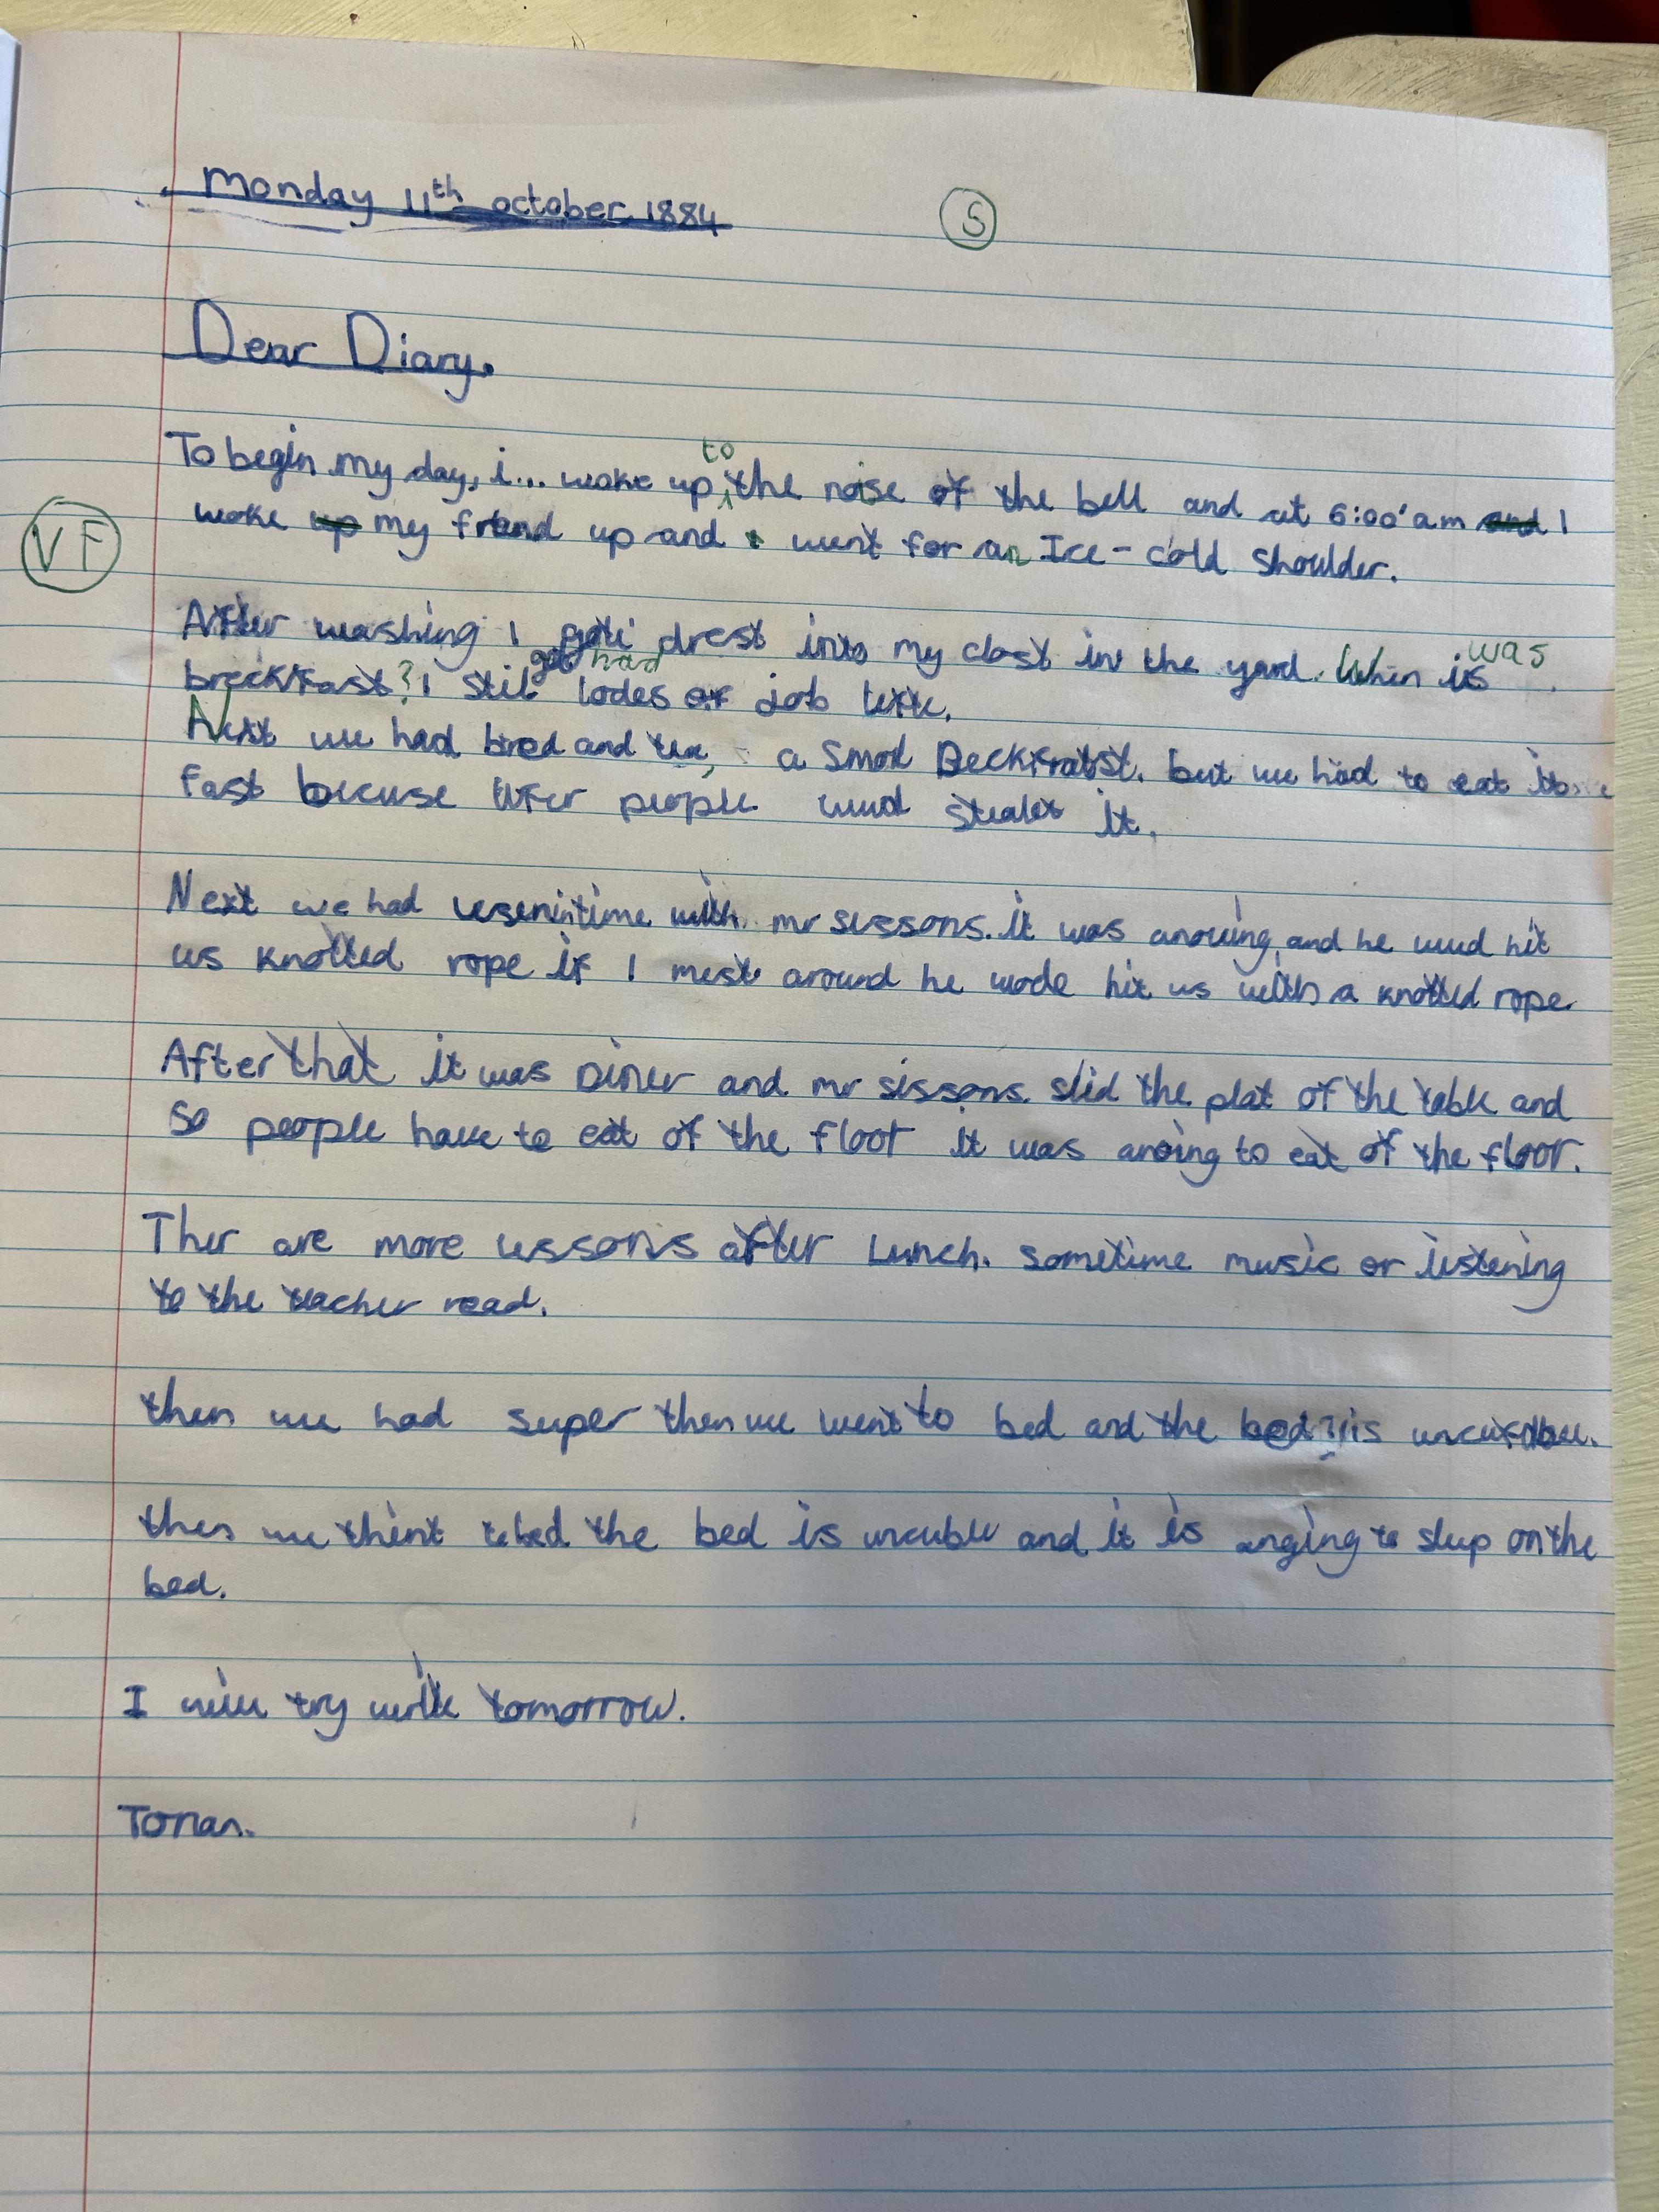 Monday 11th october 1884
S
Dear Diary.
To begin my day, i... woke up to the noise of the bell and at 6:00'am and I
VF
woke up my friend up and went for an Ice-cold shoulder.
After washing I drest into my clost in the yard. When is was
breckfast? I stil got had lodes of job left.
Next we had bred and tea, a smol Beckfratst. but we had to eat it
fast becuse people wud it.
Next we had lesenintime with mr sissons. it was anouing, and he wud hit
us knotted rope if I mest around he wode hit us with a knotted rope
After that it was Diner and mr sissons. slid the plat of the table and
so people have to eat of the floor it was anoing to eat of the floor.
Ther are more lessons after Lunch. sometime music or listening
to the teacher read.
then we had super then we went to bed and the bed is
then we thent to bed the bed is uncuble and it is anging to sleep on the
bed.
I will try write tomorrow.